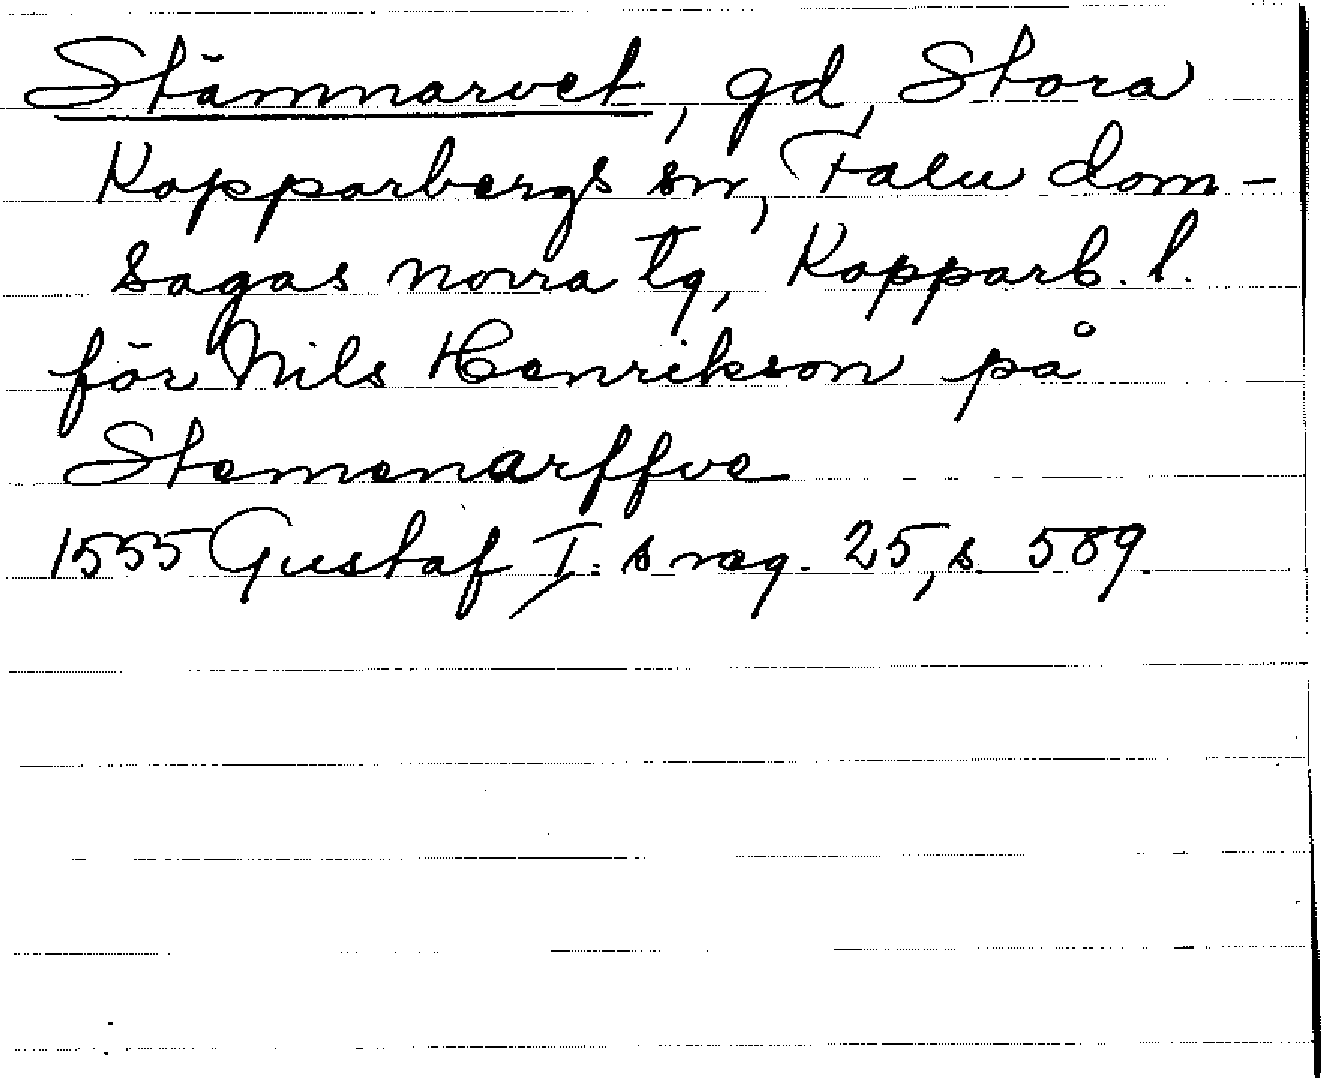 Stämnarvet, gd, Stora
Kopparbergs sn, Falu dom-
sagas norra tg, Kopparb. l.
för Nils Henrikson på
Stemenarffve
1555 Gustaf I:s reg. 25, s. 589.